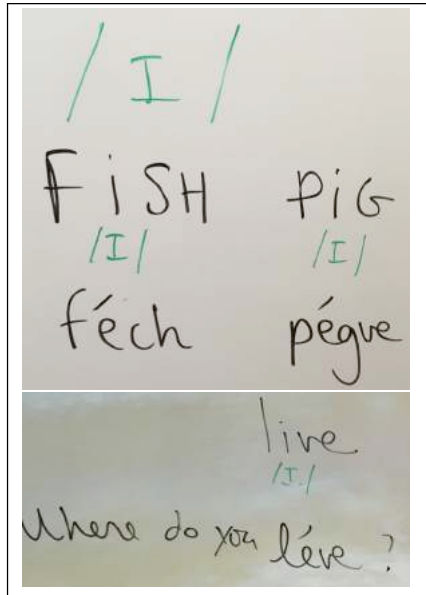 /I/
FiSH PiG
/I/ /I/
féch pégue
live
/I./
Where do you léve ?